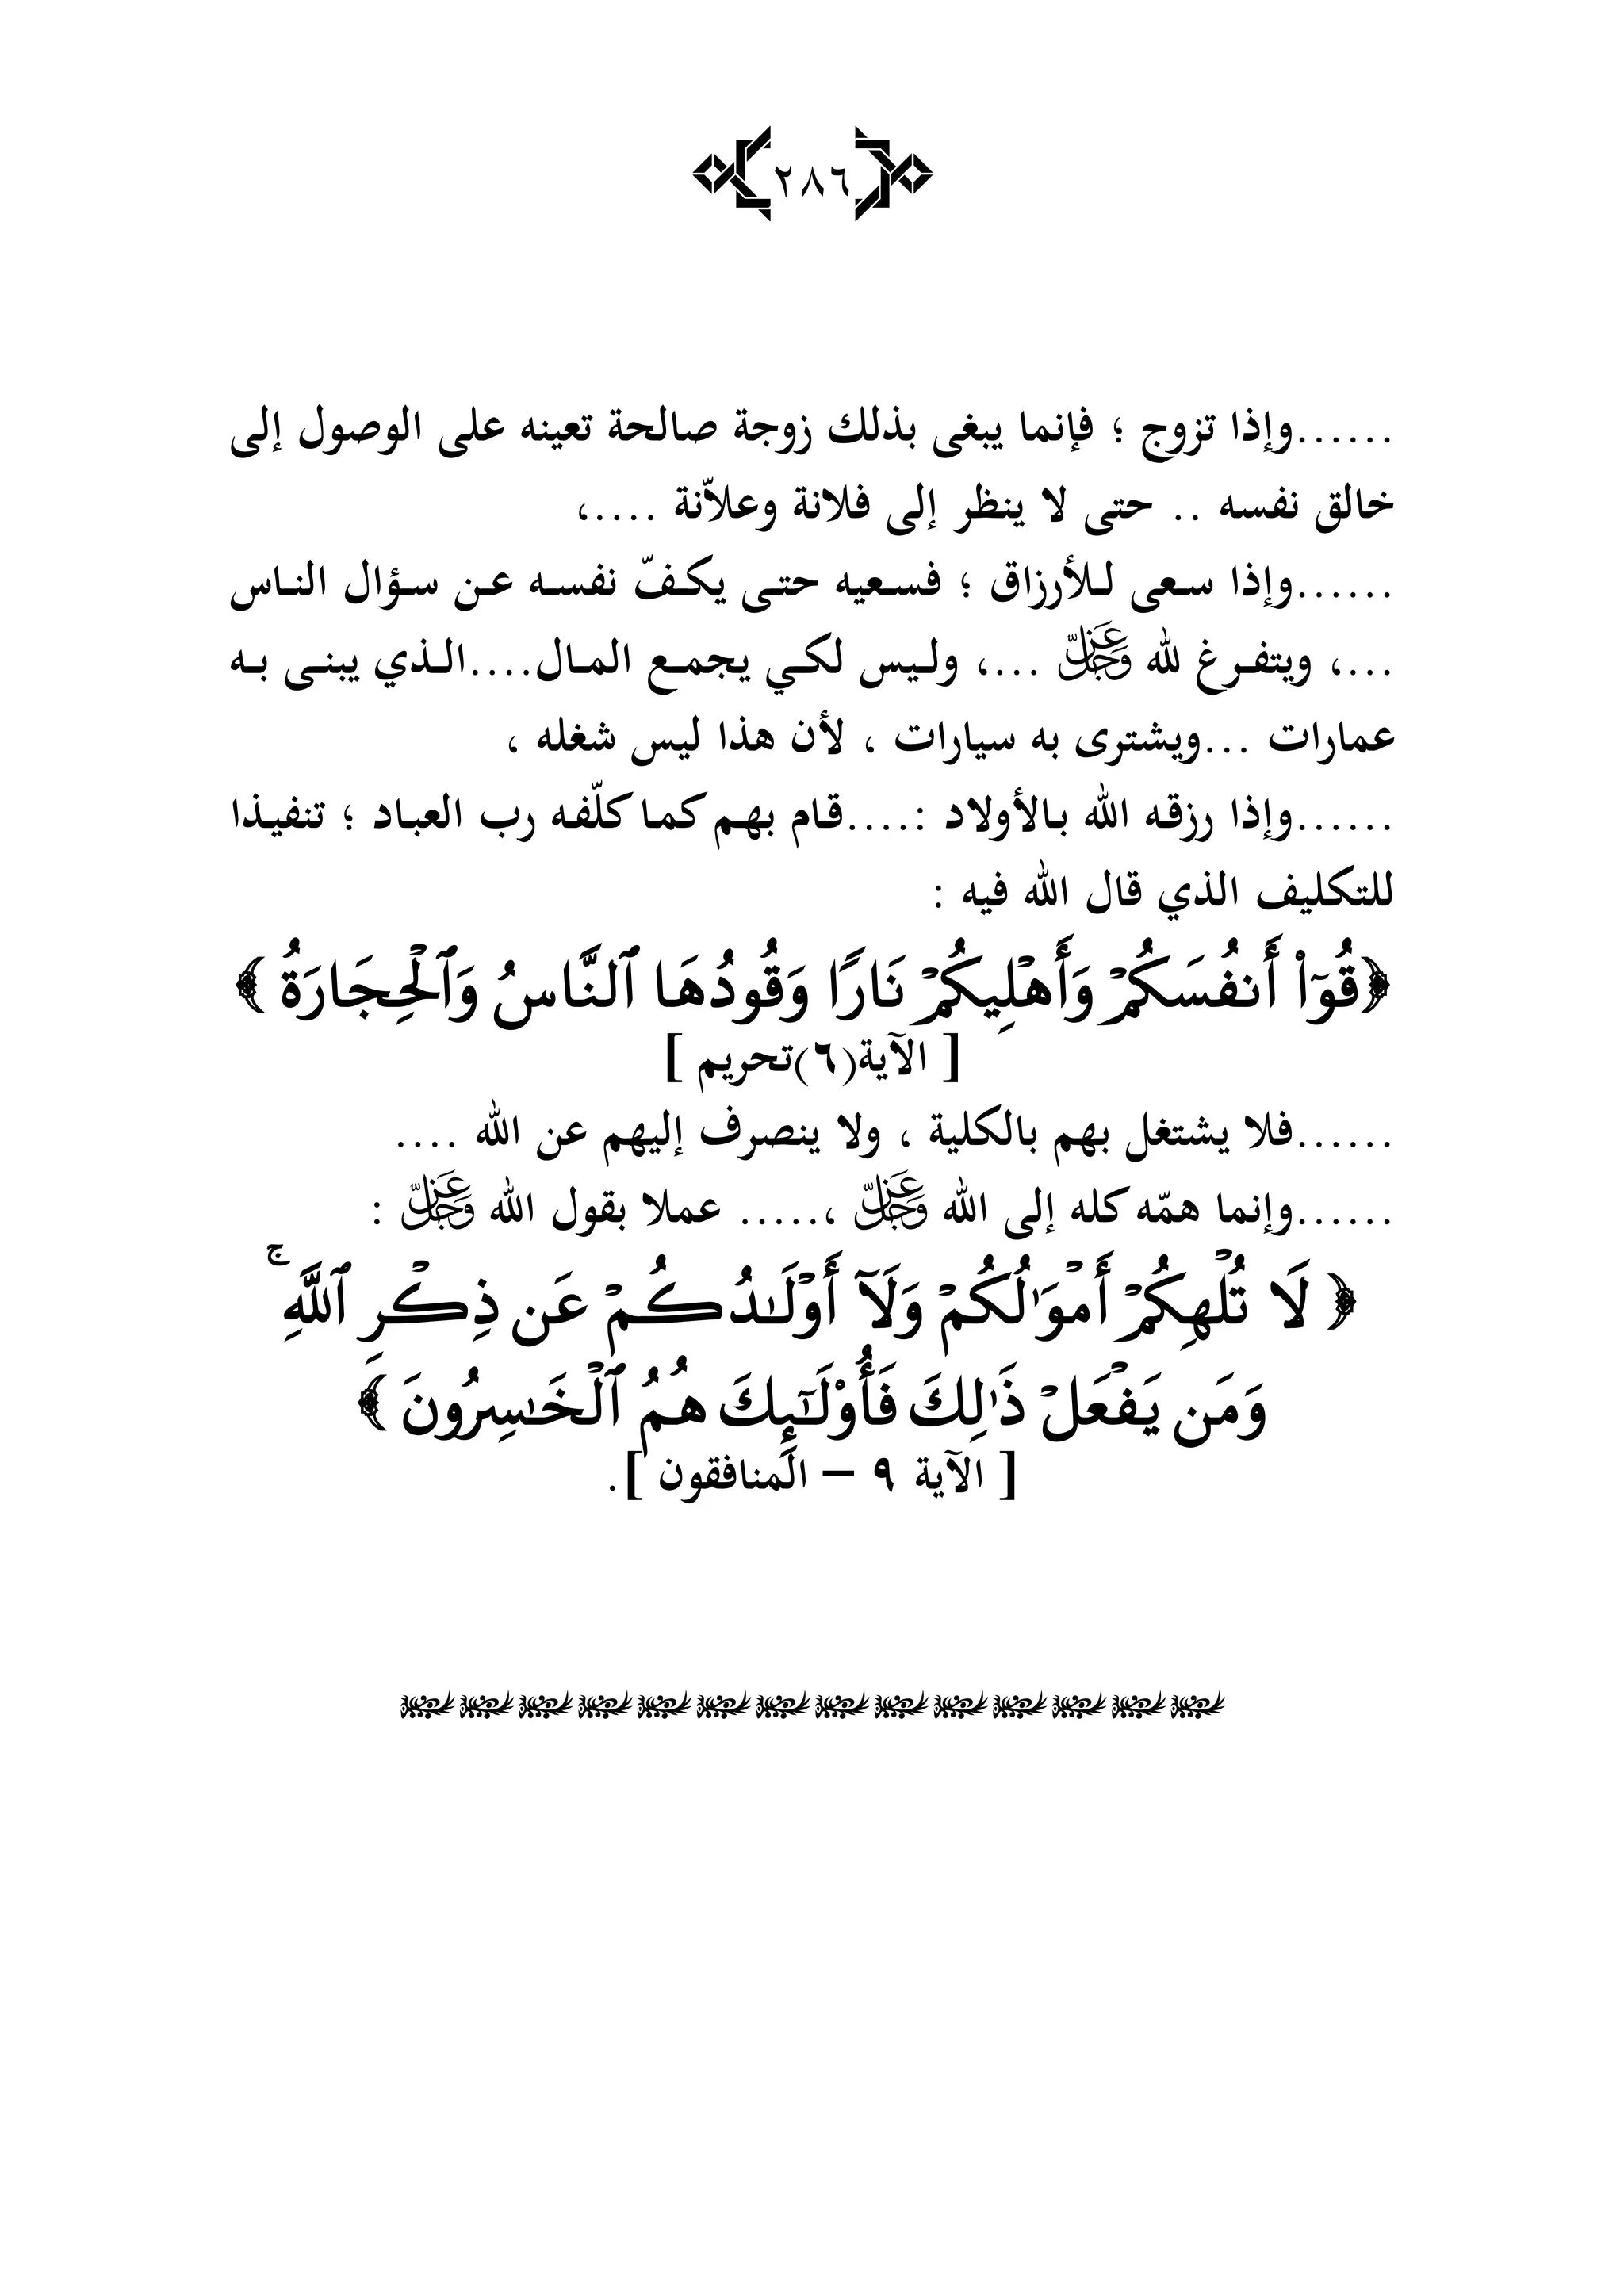 ٢٨٦
......وإذا تزوج ؛ فإنما يبغى بذلك زوجة صالحة تعينه على الوصول إلى
خالق نفسه .. حتى لا ينظر إلى فلانة وعلاّنة ....،
......وإذا سـعى لـلأرزاق ؛ فسـعيه حتـى يكـفّ نفسـه عـن سـؤال النـاس
...، ويتفـرغ لله ﷻ ...، ولـيس لكـي يجمـع المـال....الـذي يبنـى بـه
عمارات ...ويشترى به سيارات ، لأن هذا ليس شغله ،
......وإذا رزقه الله بالأولاد :....قام بهم كما كلّفه رب العباد ؛ تنفيذا
للتكليف الذي قال الله فيه :
﴿قُوٓا۟ أَنفُسَكُمۡ وَأَهۡلِيكُمۡ نَارًا وَقُودُهَا ٱلنَّاسُ وَٱلۡحِجَارَةُ ﴾
[ الآية(٦)تحريم ]
......فلا يشتغل بهم بالكلية ، ولا ينصرف إليهم عن الله ....
......وإنما همّه كله إلى الله ﷻ ،..... عملا بقول الله ﷻ :
﴿ لَا تُلۡهِكُمۡ أَمۡوَٰلُكُمۡ وَلَآ أَوۡلَـٰدُكُمۡ عَن ذِكۡرِ ٱللَّهِۚ
وَمَن يَفۡعَلۡ ذَٰلِكَ فَأُو۟لَـٰٓئِكَ هُمُ ٱلۡخَـٰسِرُونَ ﴾
[ الآية ٩ – المنافقون ].